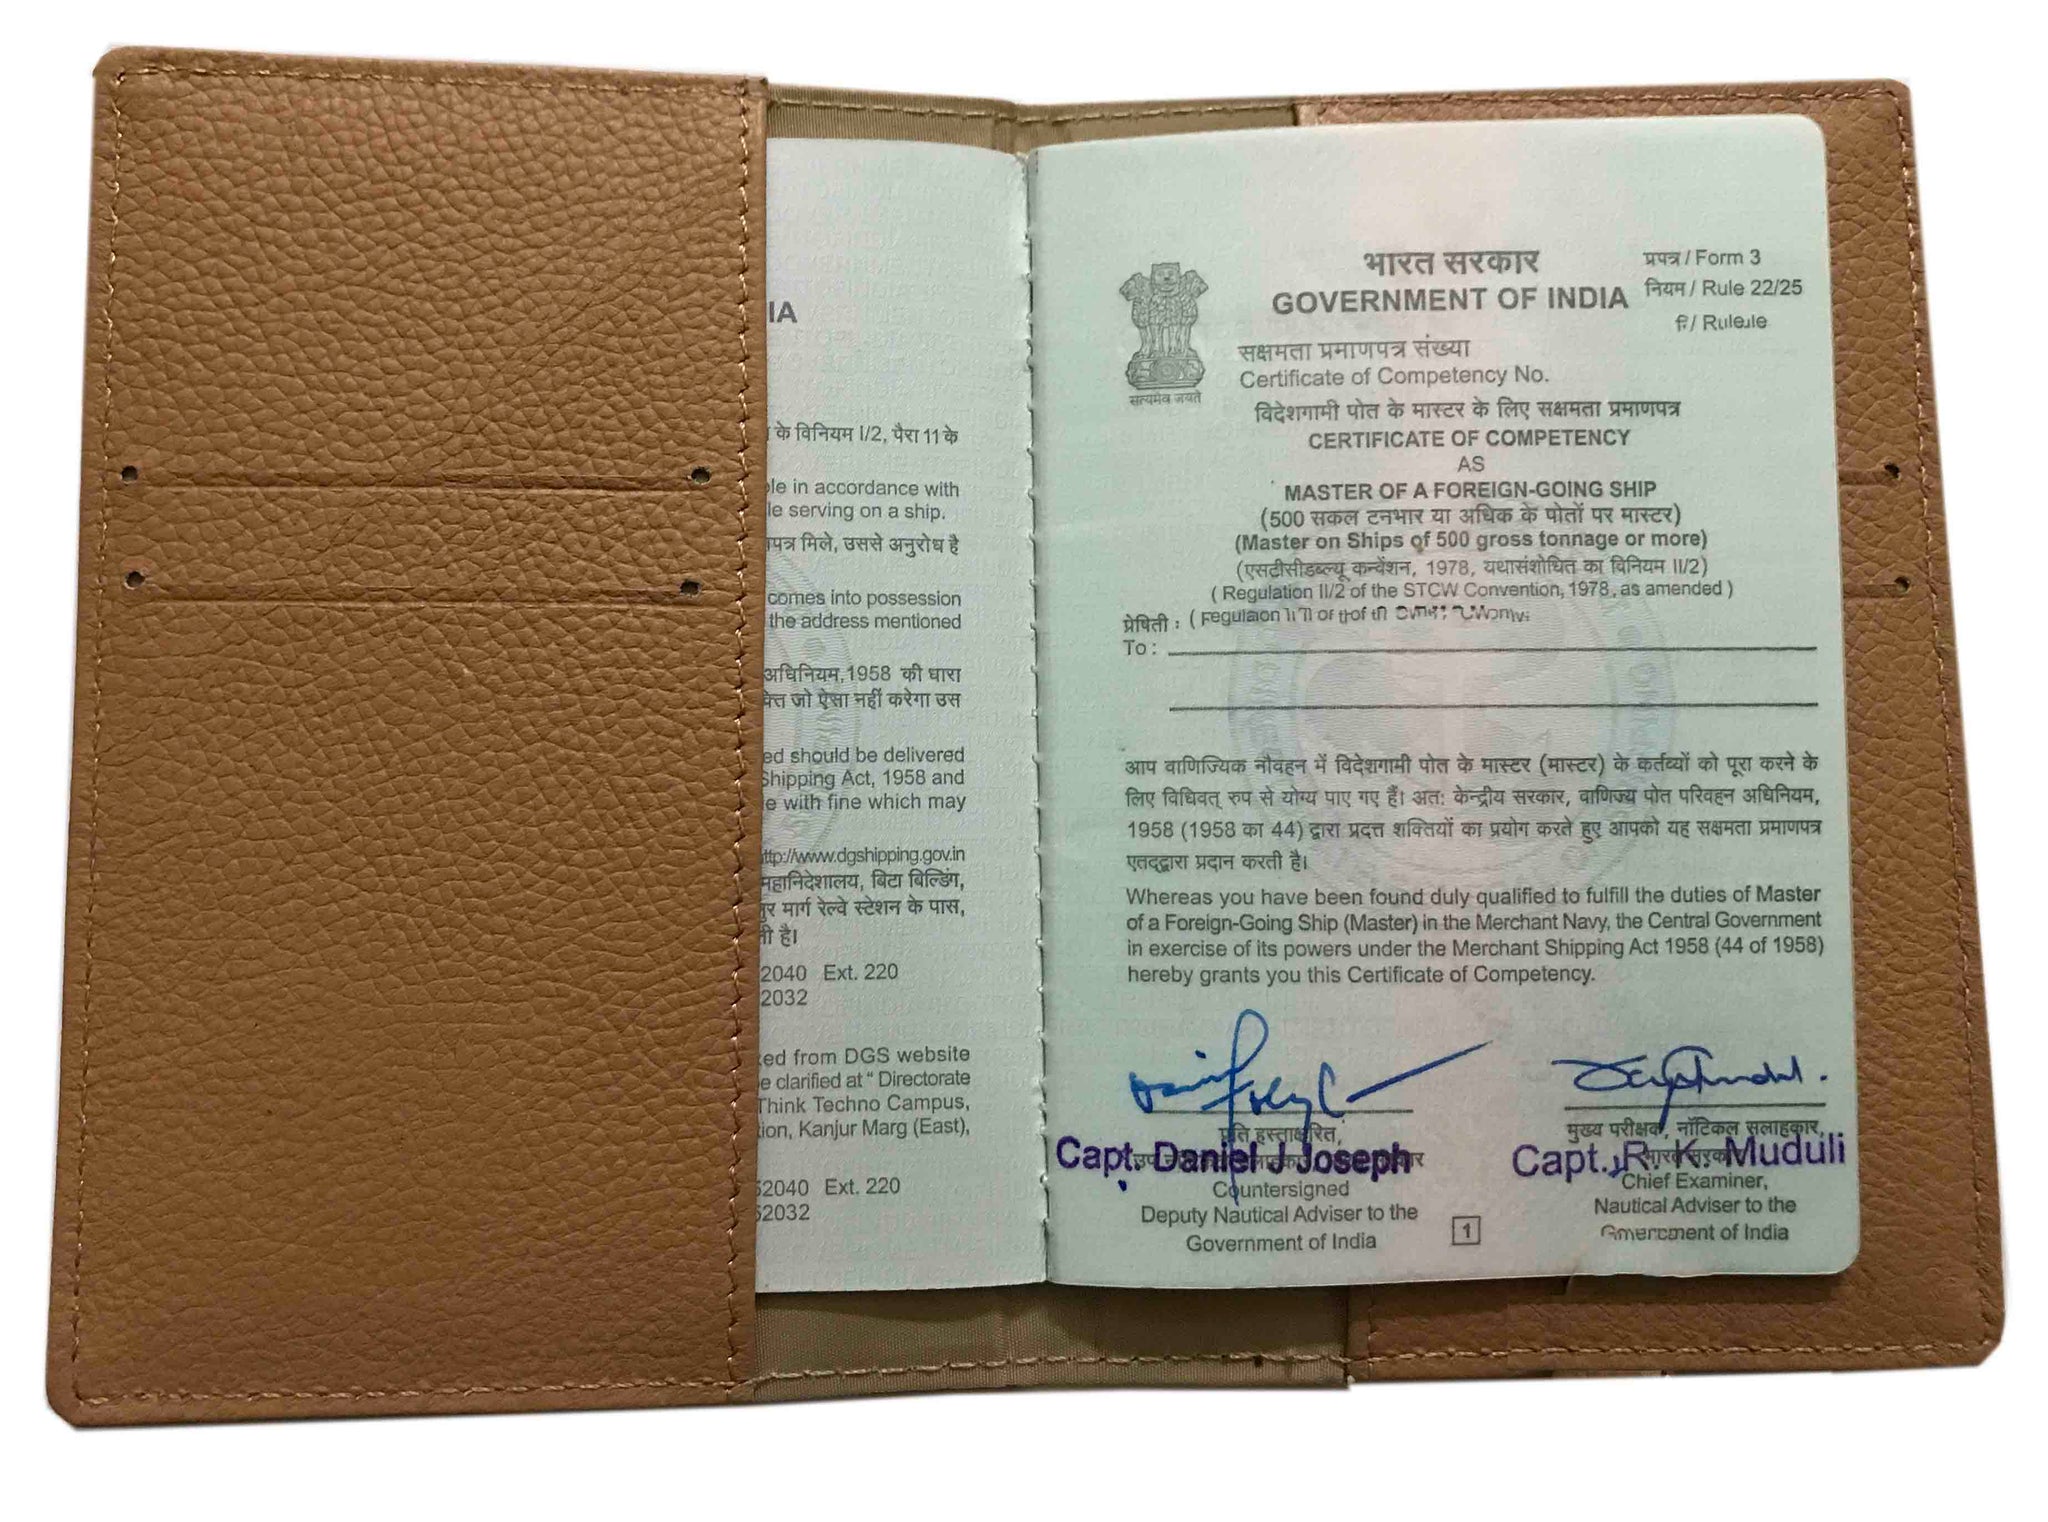 IA
के विनियम I/2, पैरा 11 के
le in accordance with
le serving on a ship.
मिले, उससे अनुरोध है
comes into possession
the address mentioned
अधिनियम, 1958 की धारा
जो ऐसा नहीं करेगा उस
ed should be delivered
Shipping Act, 1958 and
e with fine which may
ttp://www.dgshipping.gov.in
महानिदेशालय, बिटा बिल्डिंग,
मार्ग रेल्वे स्टेशन के पास,
है।
2040 Ext. 220
2032
ed from DGS website
e clarified at “ Directorate
Think Techno Campus,
ion, Kanjur Marg (East),
2040 Ext. 220
2032
भारत सरकार
GOVERNMENT OF INDIA
प्रपत्र / Form 3
नियम / Rule 22/25
सत्यमेव जयते
सक्षमता प्रमाणपत्र संख्या
Certificate of Competency No.
विदेशगामी पोत के मास्टर के लिए सक्षमता प्रमाणपत्र
CERTIFICATE OF COMPETENCY
AS
MASTER OF A FOREIGN-GOING SHIP
(500 सकल टनभार या अधिक के पोतों पर मास्टर)
(Master on Ships of 500 gross tonnage or more)
(एसटीसीडब्ल्यू कन्वेंशन, 1978, यथासंशोधित का विनियम II/2)
( Regulation II/2 of the STCW Convention, 1978, as amended )
प्रेषिती :
To :
आप वाणिज्यिक नौवहन में विदेशगामी पोत के मास्टर (मास्टर) के कर्तव्यों को पूरा करने के
लिए विधिवत् रुप से योग्य पाए गए हैं। अतः केन्द्रीय सरकार, वाणिज्य पोत परिवहन अधिनियम,
1958 (1958 का 44) द्वारा प्रदत्त शक्तियों का प्रयोग करते हुए आपको यह सक्षमता प्रमाणपत्र
एतद्द्वारा प्रदान करती है।
Whereas you have been found duly qualified to fulfill the duties of Master
of a Foreign-Going Ship (Master) in the Merchant Navy, the Central Government
in exercise of its powers under the Merchant Shipping Act 1958 (44 of 1958)
hereby grants you this Certificate of Competency.
प्रति हस्ताक्षरित,
Capt. Daniel J Joseph
Countersigned
Deputy Nautical Adviser to the
Government of India
1
मुख्य परीक्षक, नॉटिकल सलाहकार,
Capt. R. K. Muduli
Chief Examiner,
Nautical Adviser to the
of India